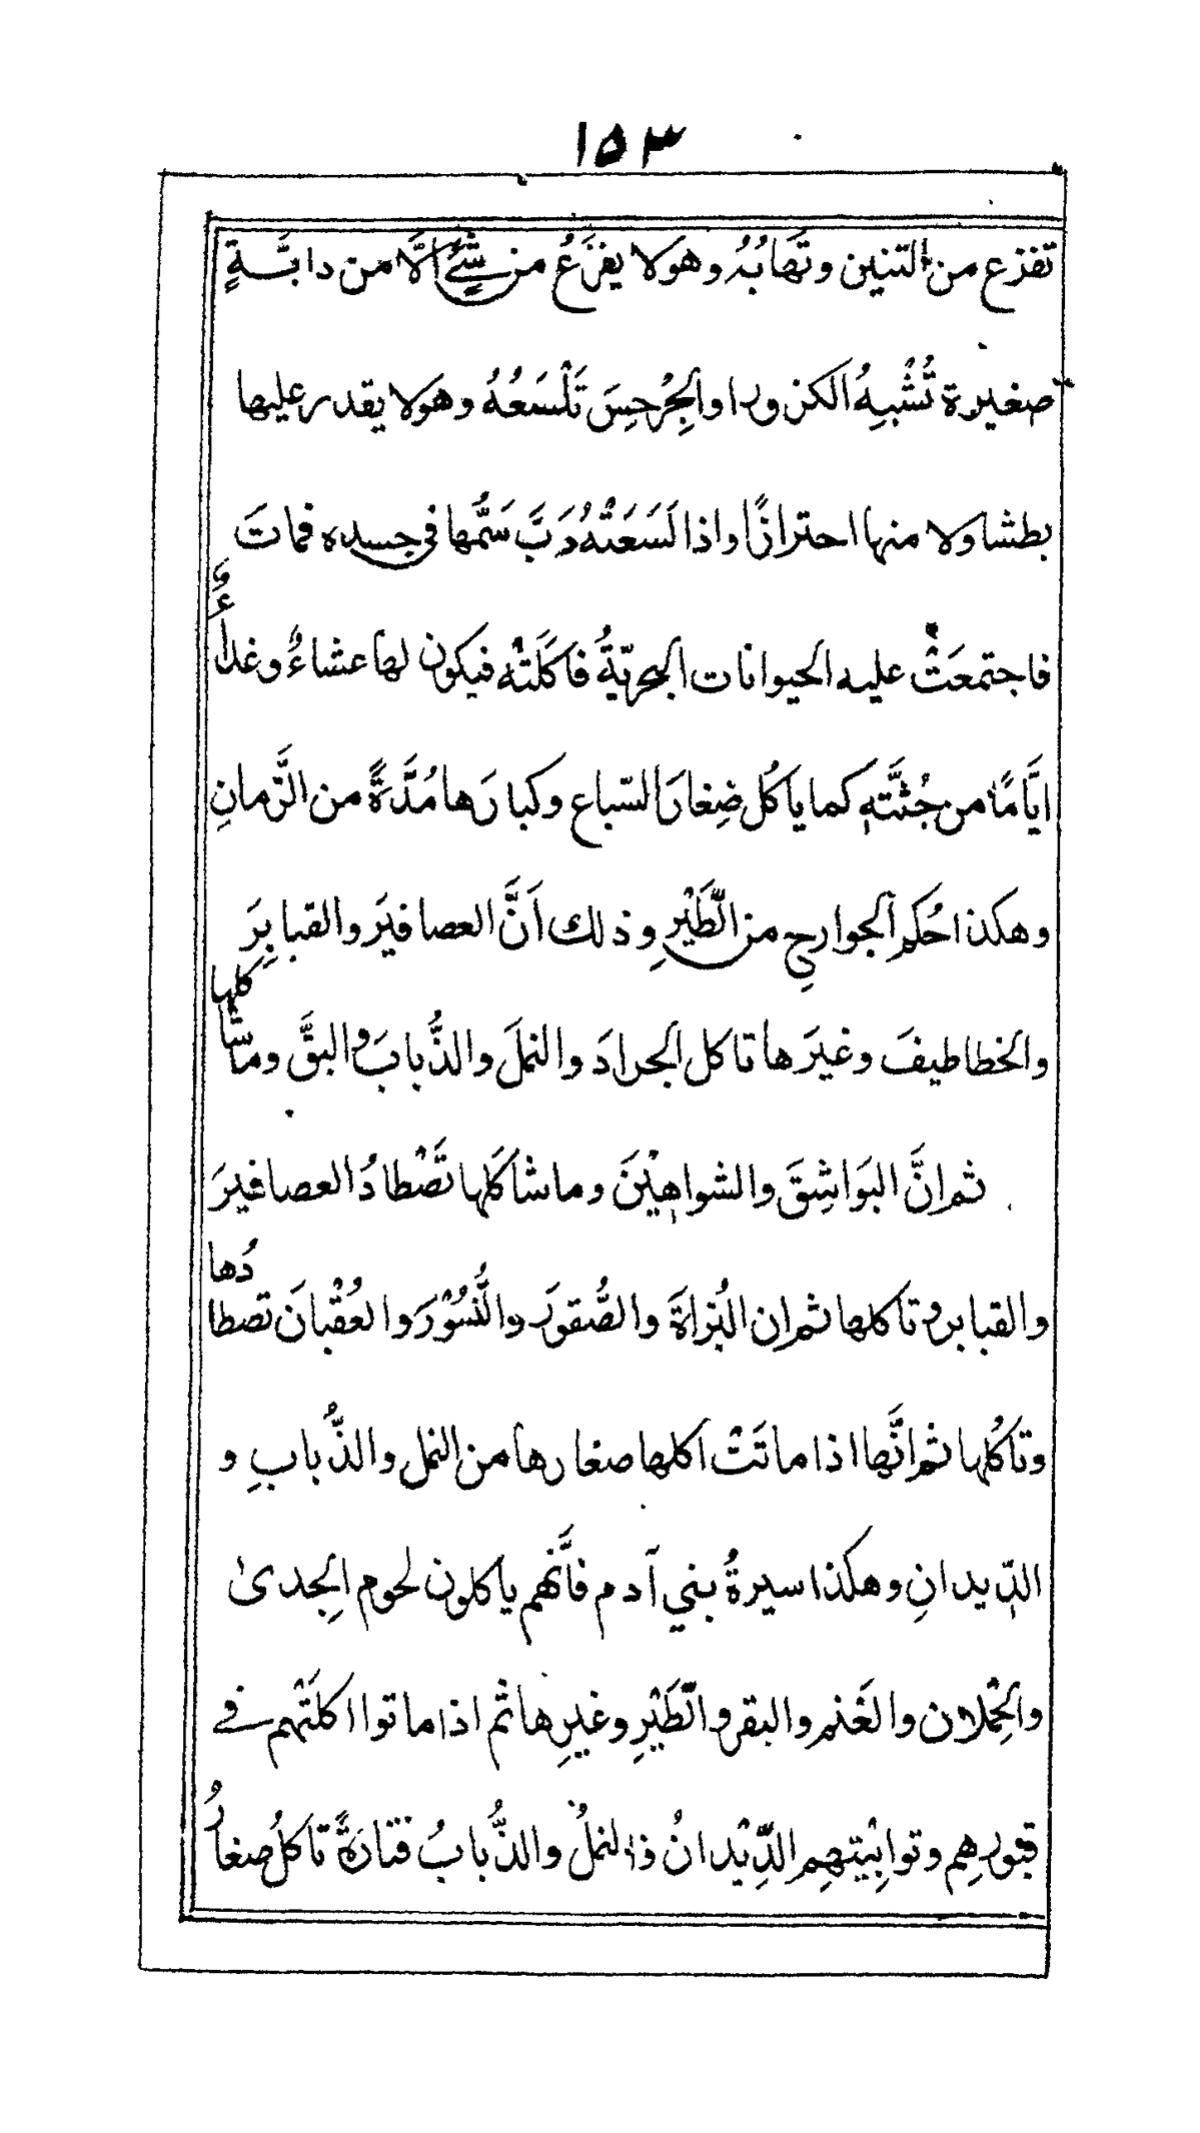 ١٥٣
تفزع من التنين وتَهابُهُ وهو لا يفزَعُ من شَيْءٍ اِلَّا من دابَّةٍ
صغيرة تُشْبِهُ الكزورا والجِرْجِسَ تَلْسَعُهُ وهو لا يقدر عليها
بطشا ولا منها احترازًا واذا لَسَعَتْهُ دَبَّ سَمُّها في جسده فماتَ
فاجتمعَتْ عليه الحيوانات البحريّةُ فاكَلَتْه فيكون لها عشاءٌ وغداءٌ
ايَّامًا من جُثَّتهٖ كما ياكُل ضِغارَ السّباع وكبارَها مُدَّةً من الزَّمانِ
وهكذا حُكم الجوارحِ من الطَّيْرِ وذلك اَنَّ العصافيرَ والقبابِرَ
والخطاطيفَ وغيرَها تاكل الجرادَ والنملَ والذُّبابَ والبقَّ وما شاكلها
ثم انَّ البَواشِقَ والشواهِيْنَ وما شاكَلها تَصْطادُ العصافيرَ
والقبابر وتاكلها ثم ان البُزاةَ والصُّقورَ والنُّسُوْرَ والعُقْبانَ تصطادُها
وتاكُلها ثم انَّها اذا ماتَتْ اكلها صغارها من النمل والذُّبابِ و
الدّيدانِ وهكذا سيرةُ بني آدم فانَّهم ياكلون لحوم الجِدىٰ
والحِمْلان والغَنم والبقر والطَّيْرِ وغيرِها ثم اذا ماتوا اكلَتْهم في
قبورِهِم وتوابِيْتهِم الدِّيْدانُ والنملُ والذُّبابُ فتارَةً تاكلُ صغارُ